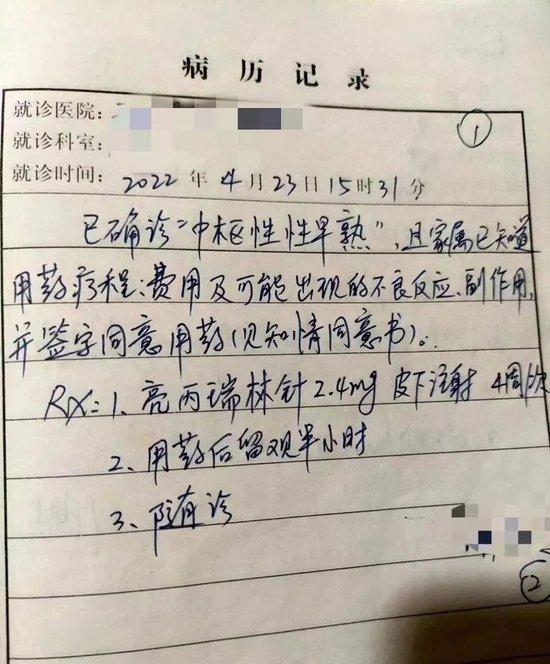 病历记录
就诊医院:
①
就诊科室:
就诊时间: 2022年4月23日15时31分
已确诊“中枢性性早熟”,且家属已知道
用药疗程、费用及可能出现的不良反应、副作用,
并签字同意用药(见知情同意书)。
RX: 1、亮丙瑞林针 2.4mg 皮下注射 4周1次
2、用药后留观半小时
3、随诊
②